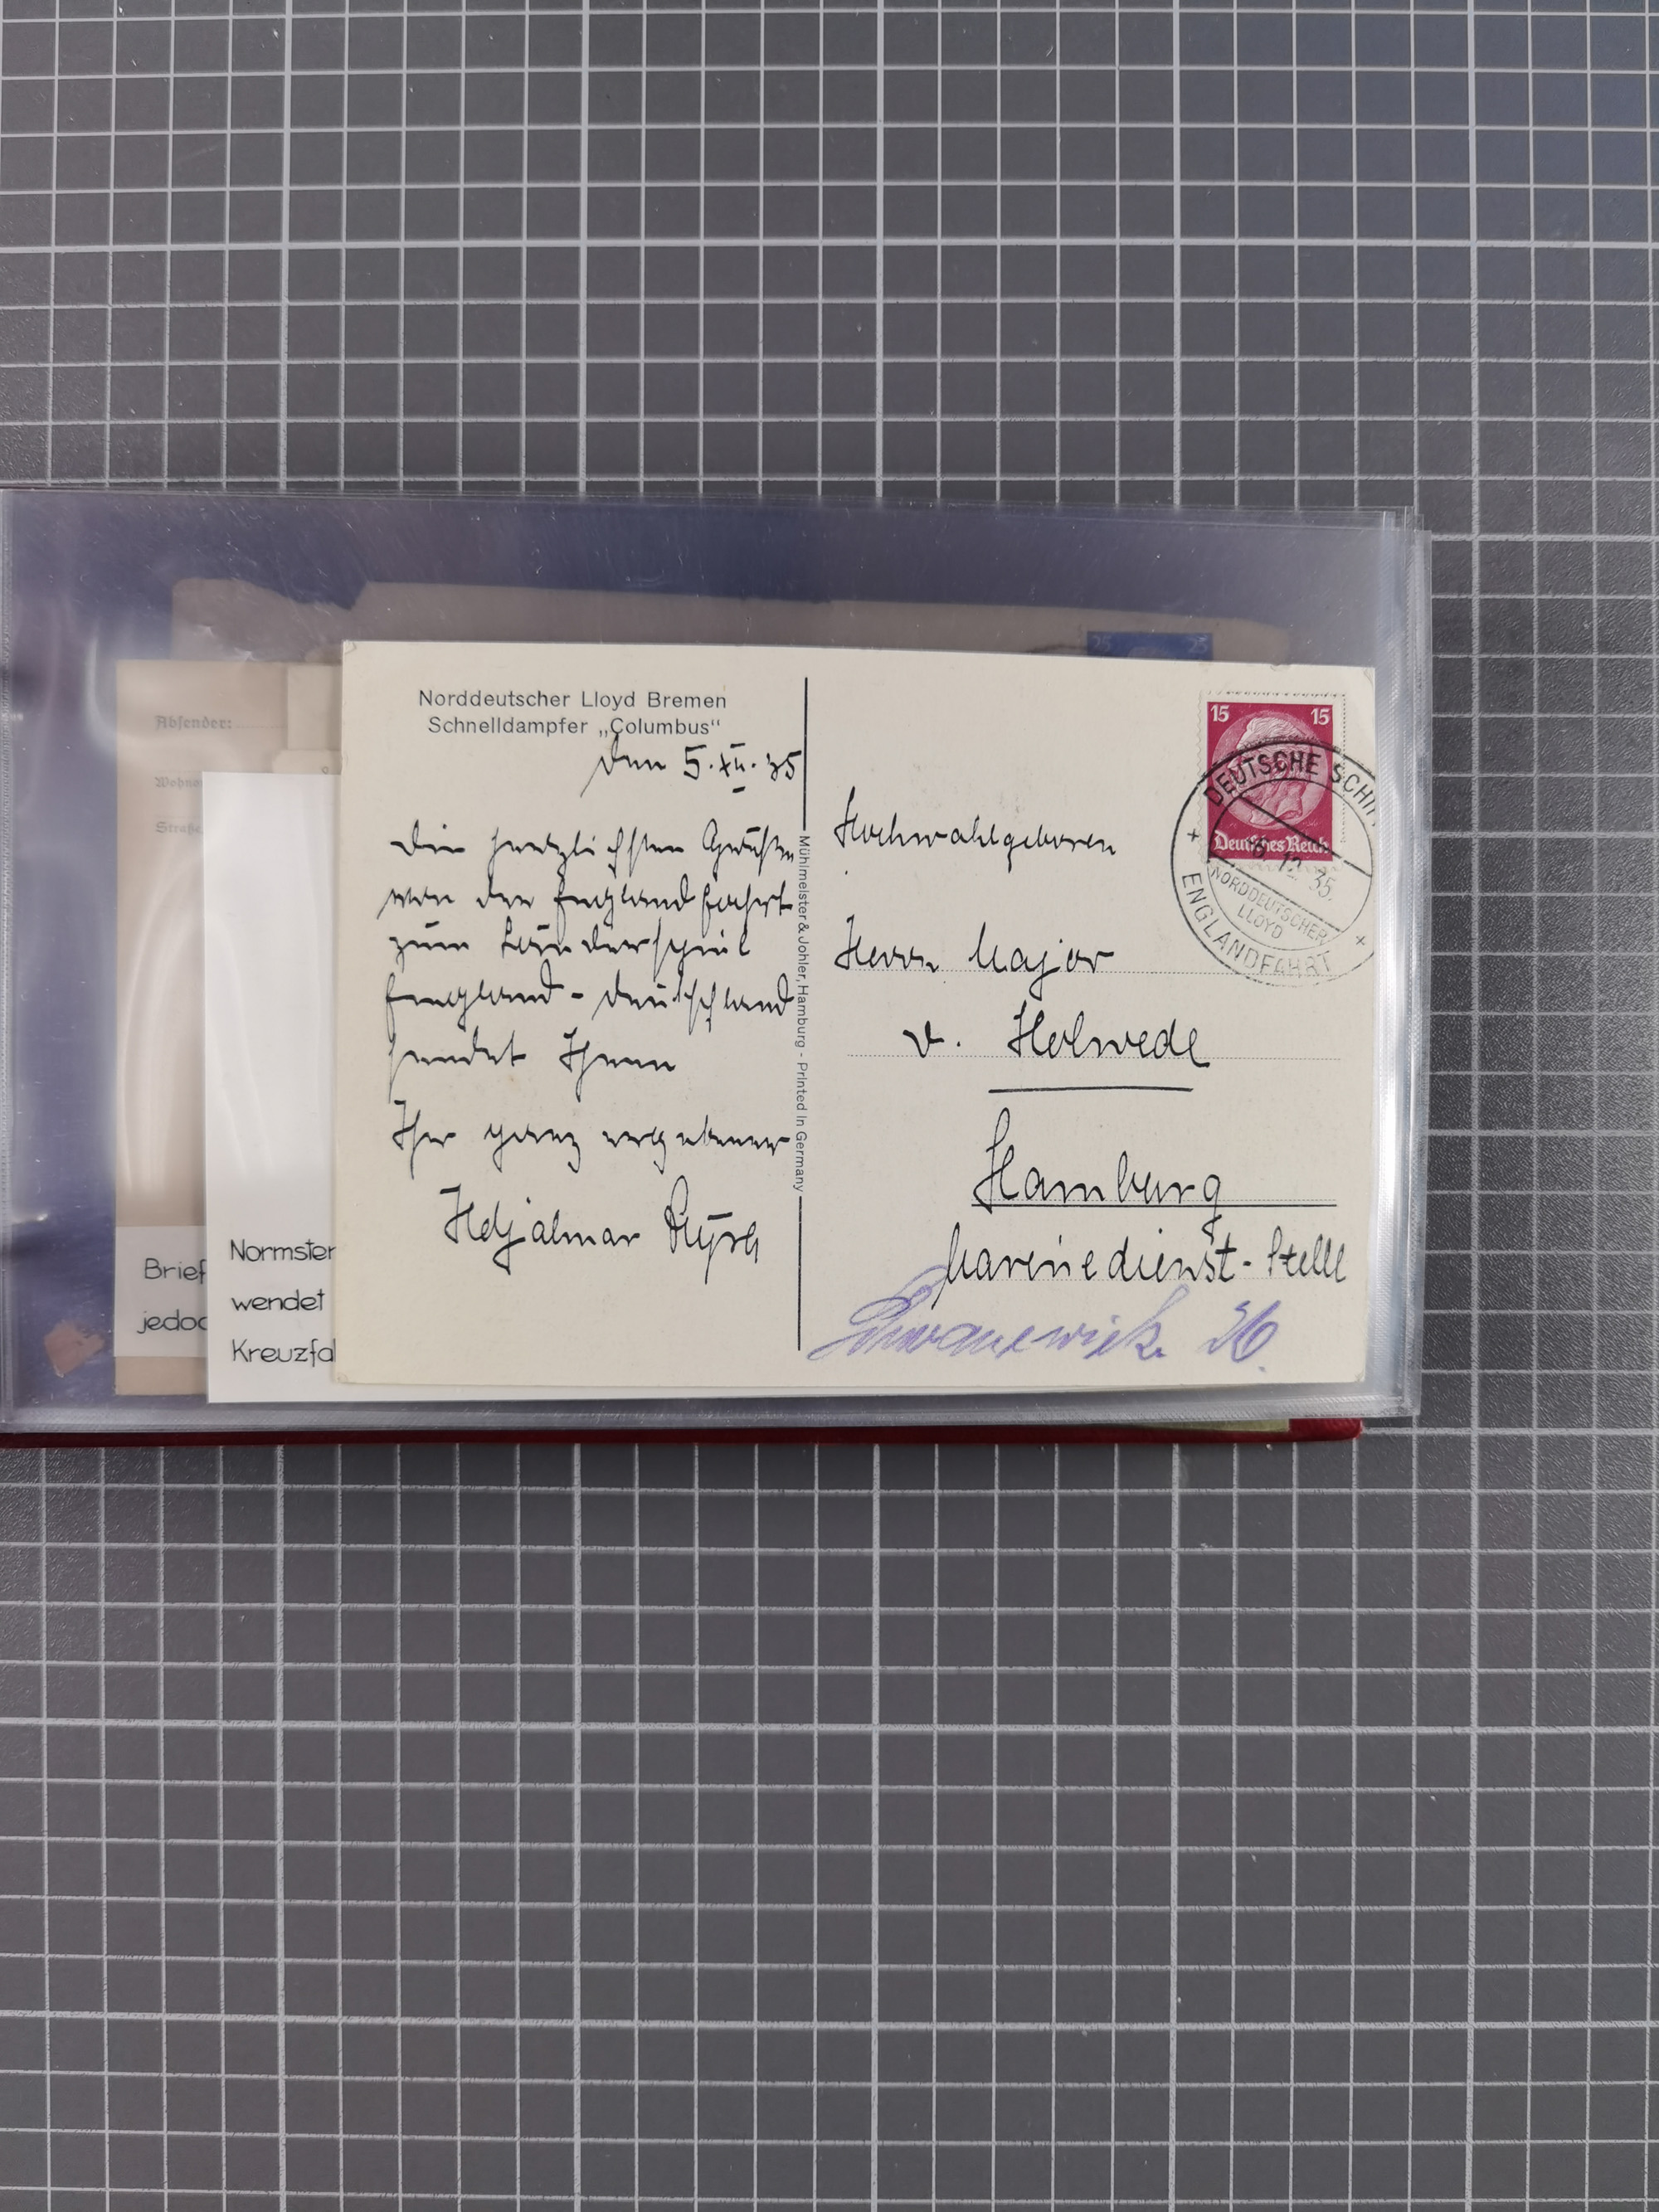 Norddeutscher Lloyd Bremen
Schnelldampfer „Columbus“
den 5.XII.35
Die herzlichsten Grüße
von der Englandfahrt
zum Länderspiel
England - Deutschland
sendet Ihnen
Ihr ganz ergebener
Hdjalmar
Mühlmeister & Johler, Hamburg - Printed in Germany
15 15
Deutsches Reich
DEUTSCHE SCHI
12.35.
NORDDEUTSCHER
LLOYD
ENGLANDFAHRT
Hochwohlgeboren
Herrn Major
v. Holwede
Hamburg
Marinedienst-Stelle
Schwanenwik 26.
25 25
Absender:
Wohnor
Straße
Brief
jedoc
Normster
wendet
Kreuzfa